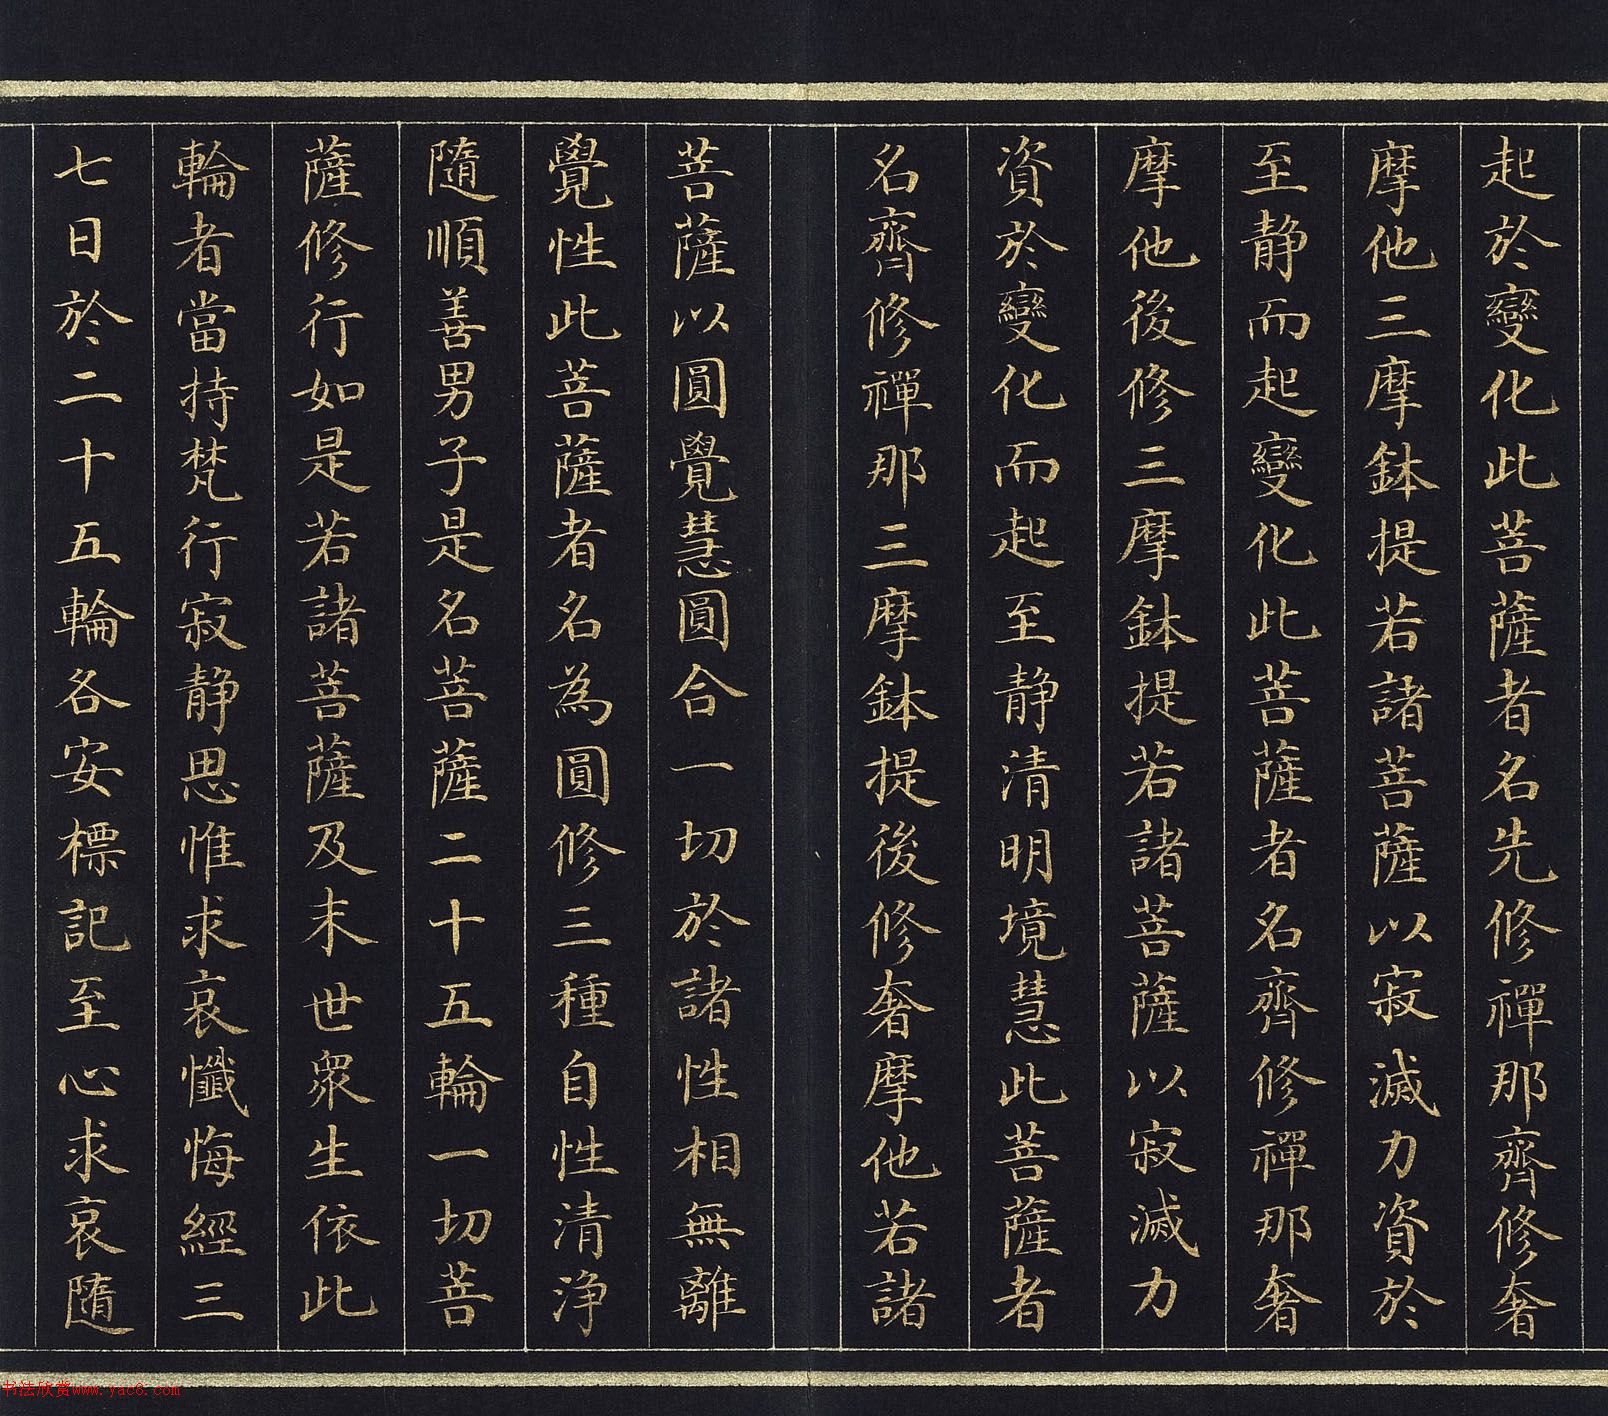 起於變化此菩薩者名先修禪那齊修奢
摩他三摩鉢提若諸菩薩以寂滅力資於
至静而起變化此菩薩者名齊修禪那奢
摩他後修三摩鉢提若諸菩薩以寂滅力
資於變化而起至静清明境慧此菩薩者
名齊修禪那三摩鉢提後修奢摩他若諸
菩薩以圓覺慧圓合一切於諸性相無離
覺性此菩薩者名為圓修三種自性清浄
隨順善男子是名菩薩二十五輪一切菩
薩修行如是若諸菩薩及末世眾生依此
輪者當持梵行寂静思惟求哀懺悔經三
七日於二十五輪各安標記至心求哀隨
书法欣赏www.yac8.com